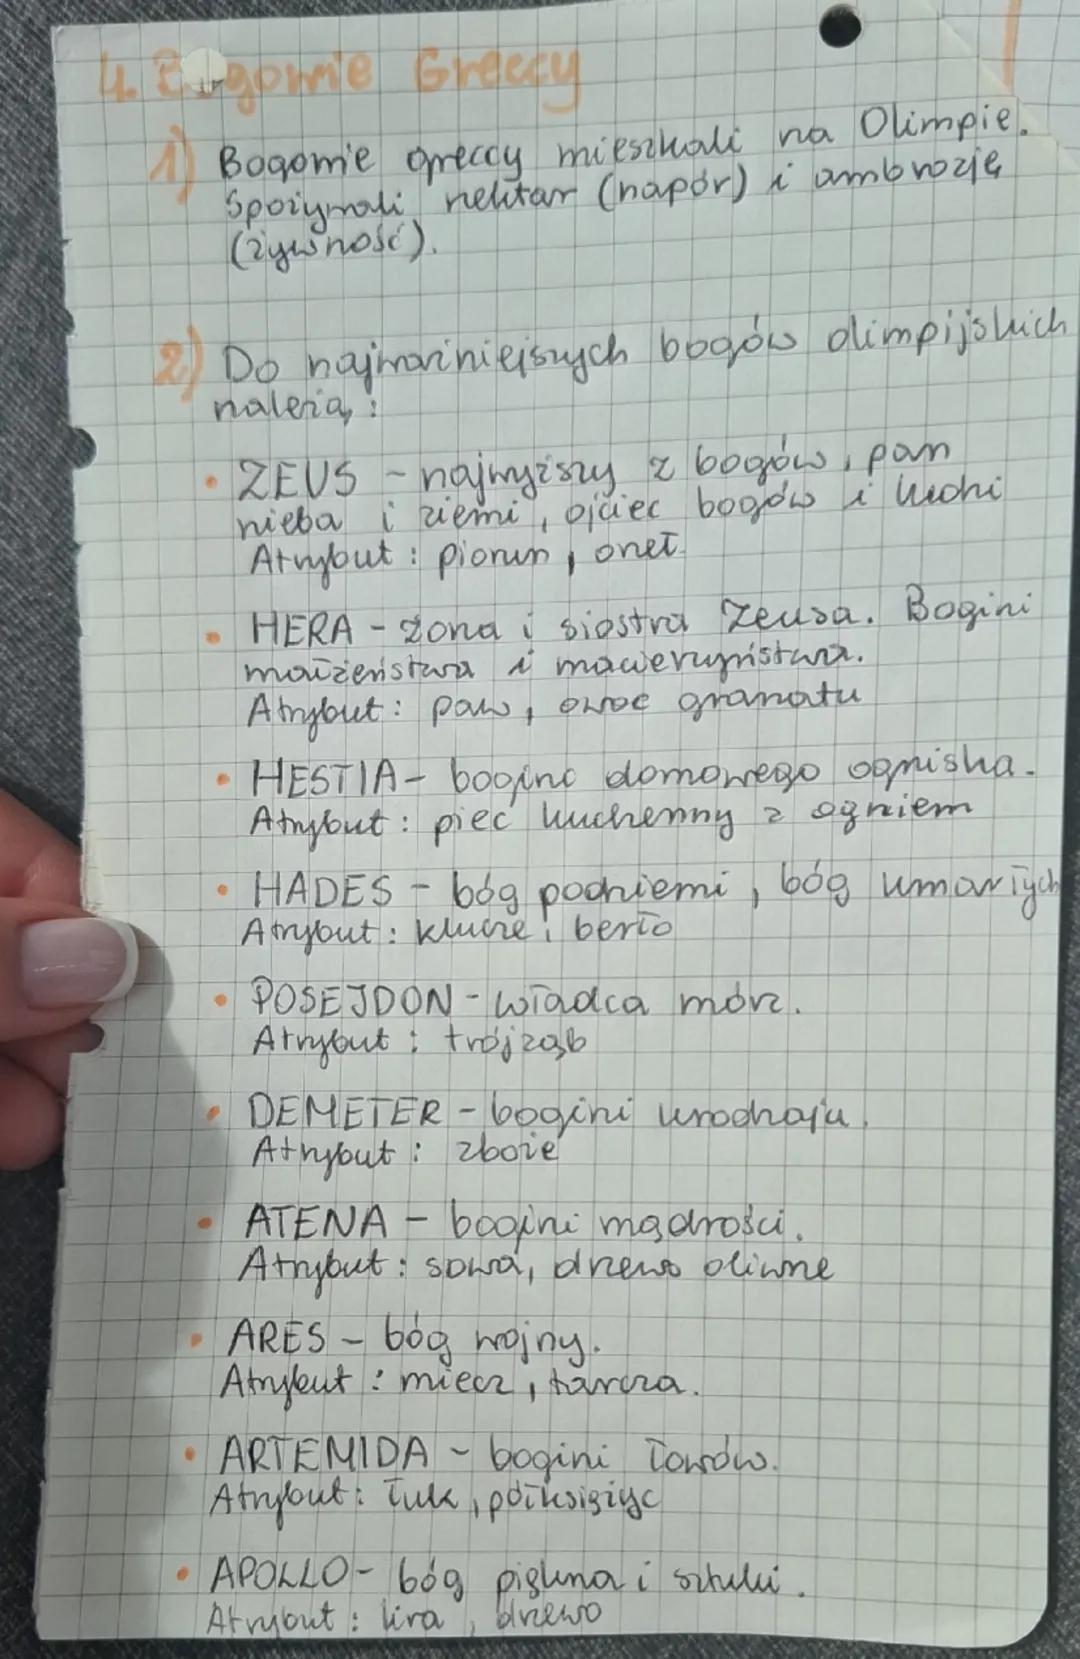 4. Bogowie Greccy
1) Bogowie greccy mieszkali na Olimpie.
Spożywali nektar (napór) i ambrozję
(żywność).
2) Do najważniejszych bogów olimpijskich
należą:
• ZEUS - najwyższy z bogów, pan
nieba i ziemi, ojciec bogów i ludzi
Atrybut: piorun, orzeł
• HERA - żona i siostra Zeusa. Bogini
małżeństwa i macierzyństwa.
Atrybut: paw, owoc granatu
• HESTIA - bogini domowego ogniska.
Atrybut: piec kuchenny z ogniem
• HADES - bóg podziemi, bóg umarłych
Atrybut: klucze, berło
• POSEJDON - władca mórz.
Atrybut: trójząb
• DEMETER - bogini urodzaju.
Atrybut: zboże
• ATENA - bogini mądrości.
Atrybut: sowa, drzewo oliwne
• ARES - bóg wojny.
Atrybut: miecz, tarcza.
• ARTEMIDA - bogini łowów.
Atrybut: łuk, półksiężyc
• APOLLO - bóg piękna i sztuki.
Atrybut: lira, drzewo